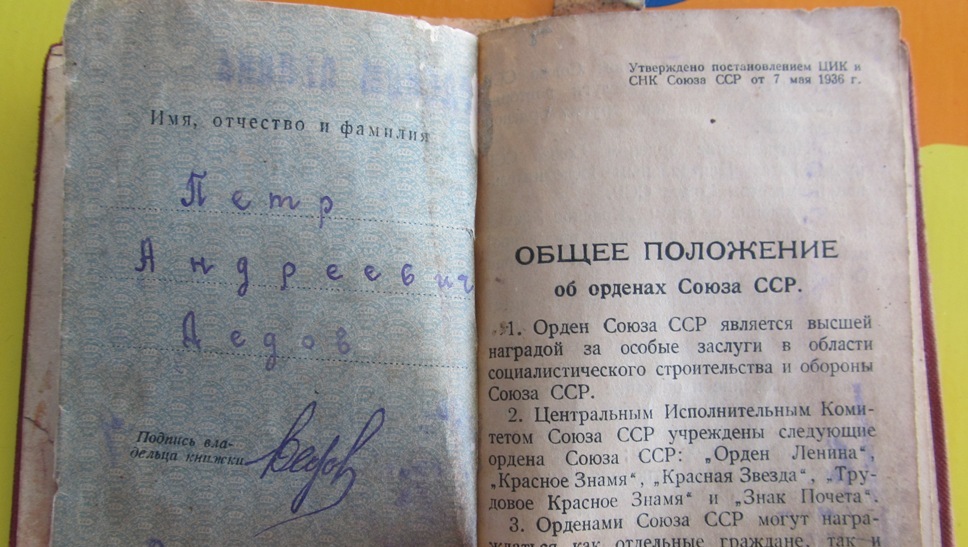 Имя, отчество и фамилия
Петр
Андреевич
Дедов
Подпись вла-
дельца книжки
Дедов
Утверждено постановлением ЦИК и
СНК Союза ССР от 7 мая 1936 г.
ОБЩЕЕ ПОЛОЖЕНИЕ
об орденах Союза ССР.
1. Орден Союза ССР является высшей
наградой за особые заслуги в области
социалистического строительства и обороны
Союза ССР.
2. Центральным Исполнительным Коми-
тетом Союза ССР учреждены следующие
ордена Союза ССР: „Орден Ленина“,
„Красное Знамя“, „Красная Звезда“, „Тру-
довое Красное Знамя“ и „Знак Почета“.
3. Орденами Союза ССР могут награ-
ждаться как отдельные граждане, так и